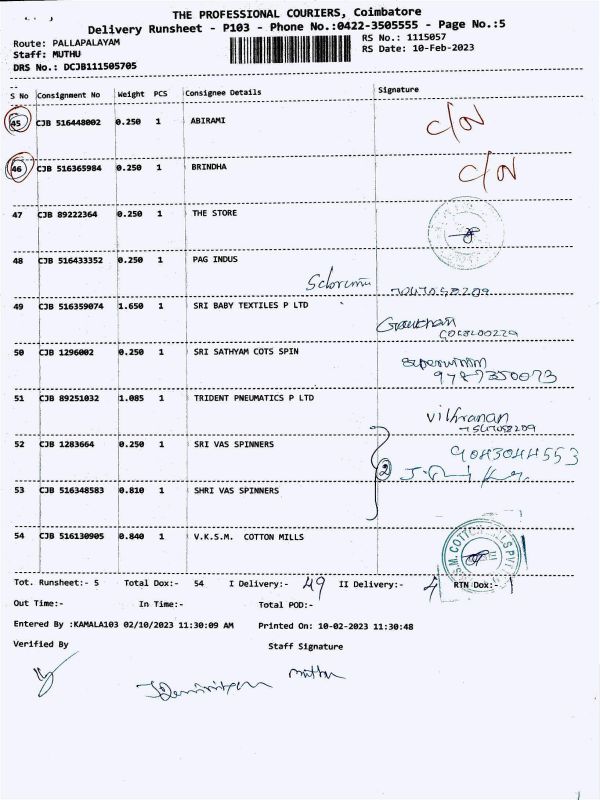 THE PROFESSIONAL COURIERS, Coimbatore
Delivery Runsheet - P103 - Phone No.:0422-3505555 - Page No.:5
Route: PALLAPALAYAM
RS No.: 1115057
Staff: MUTHU
RS Date: 10-Feb-2023
DRS No.: DCJB111505705
S No Consignment No Weight PCS Consignee Details Signature
45 CJB 516448002 0.250 1 ABIRAMI C/N
46 CJB 516365984 0.250 1 BRINDHA C/N
47 CJB 89222364 0.250 1 THE STORE
48 CJB 516433352 0.250 1 PAG INDUS
49 CJB 516359074 1.650 1 SRI BABY TEXTILES P LTD
Goutham
50 CJB 1296002 0.250 1 SRI SATHYAM COTS SPIN
9787350073
51 CJB 89251032 1.085 1 TRIDENT PNEUMATICS P LTD
52 CJB 1283664 0.250 1 SRI VAS SPINNERS 9043044553
2
53 CJB 516348583 0.810 1 SHRI VAS SPINNERS
54 CJB 516130905 0.840 1 V.K.S.M. COTTON MILLS
Tot. Runsheet:- 5 Total Dox:- 54 I Delivery:- 49 II Delivery:- 4 RTN Dox:- 1
Out Time:- In Time:- Total POD:-
Entered By :KAMALA103 02/10/2023 11:30:09 AM Printed On: 10-02-2023 11:30:48
Verified By Staff Signature
muthu